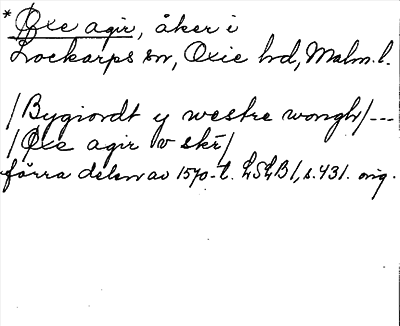 * Øxe agir, åker i
Lockarps sn, Oxie hd, Malm.l.
/Bygiordt y westre wongh/---
/Øxe agir v skr/
förra delen av 1570-t. LSLB1, s.431. orig.